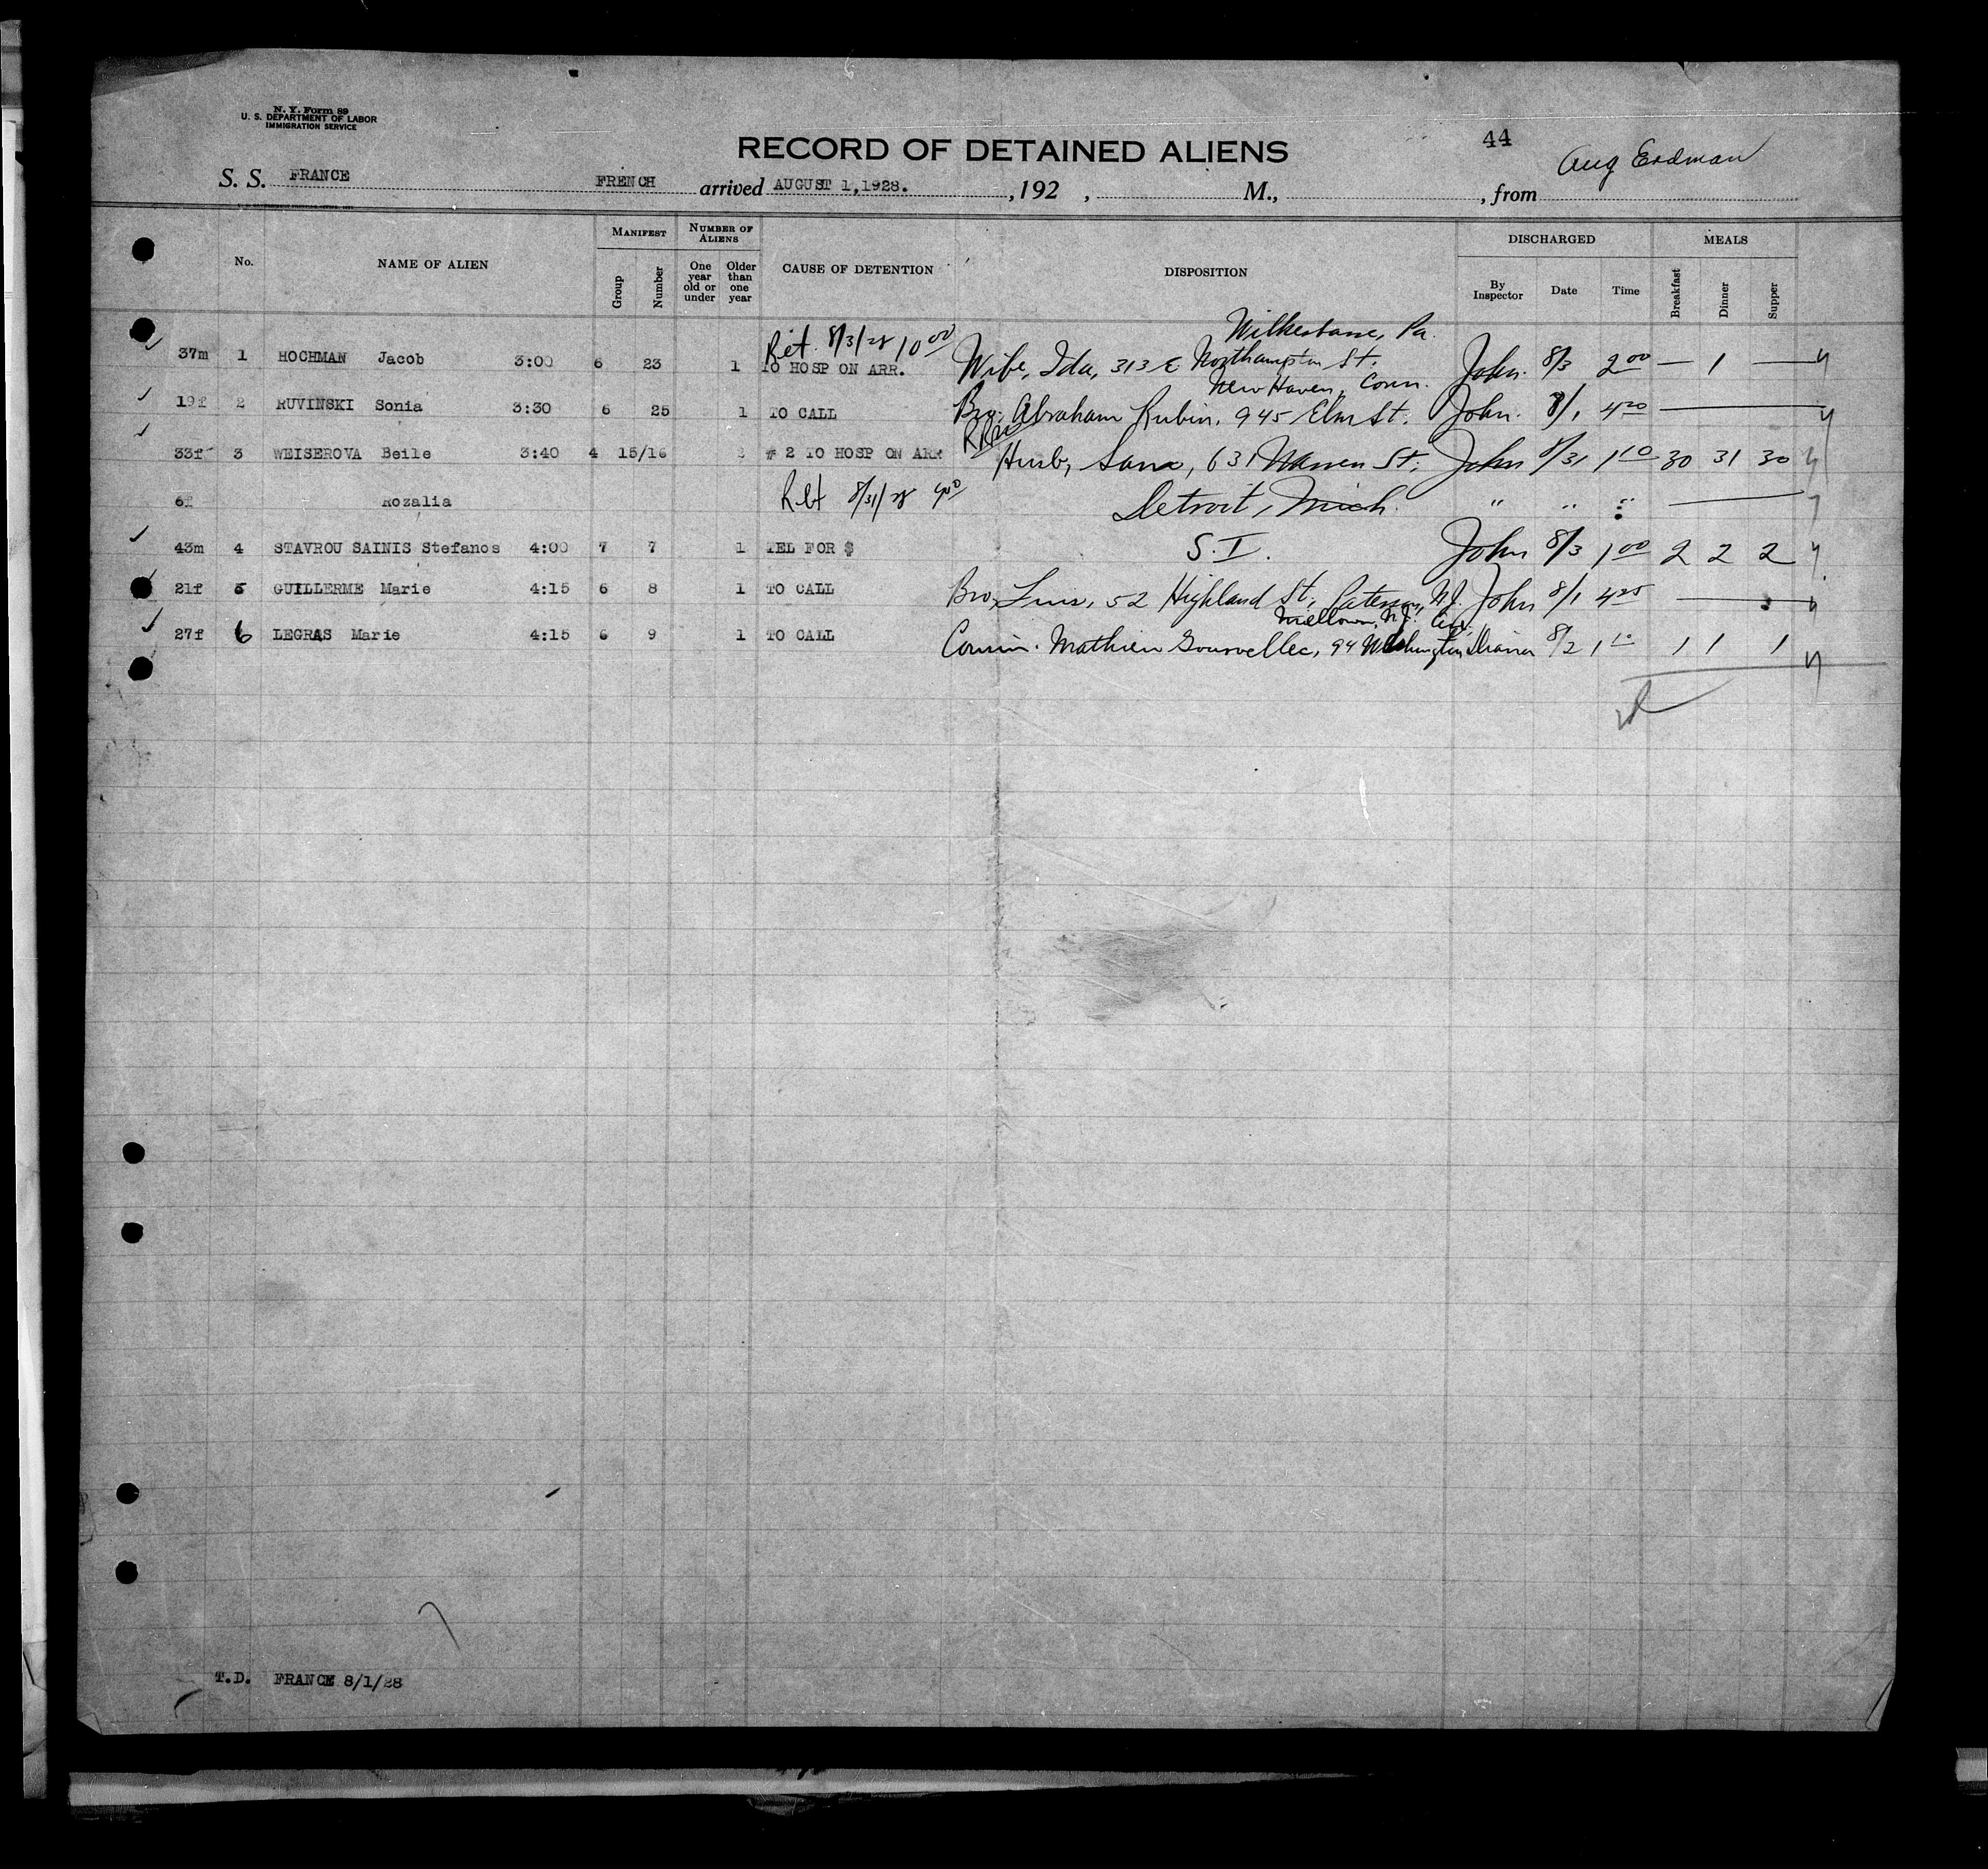 N. Y. Form 89
U. S. DEPARTMENT OF LABOR
IMMIGRATION SERVICE
RECORD OF DETAINED ALIENS
44
Aug Erdman
S. S. FRANCE FRENCH arrived AUGUST 1,1928. , 192 , M., , from
No. NAME OF ALIEN MANIFEST Group Number NUMBER OF ALIENS One year old or under Older than one year CAUSE OF DETENTION DISPOSITION DISCHARGED By Inspector Date Time MEALS Breakfast Dinner Supper
Ret. 8/3/28 10 00 Wilkesbarre, Pa.
37m 1 HOCHMAN Jacob 3:00 6 23 1 TO HOSP ON ARR. Wife, Ida, 313 E Northampton St. John. 8/3 2 00 — 1 —
New Haven, Conn.
19f 2 RUVINSKI Sonia 3:30 6 25 1 TO CALL Bro. Abraham Rubin, 945 Elm St. John. 8/1 4 20
33f 3 WEISEROVA Beile 3:40 4 15/16 2 # 2 TO HOSP ON ARR Husb, Sam, 631 Warren St. John 8/31 1 10 30 31 30
6f Rozalia 8/31/28 Detroit, Mich. " " "
43m 4 STAVROU SAINIS Stefanos 4:00 7 7 1 TEL FOR $ S.I. John 8/3 1 00 2 2 2
21f 5 GUILLERME Marie 4:15 6 8 1 TO CALL Bro, Louis, 52 Highland St, Paterson, N.J. John 8/1 4 25
Milltown, N.J.
27f 6 LEGRAS Marie 4:15 6 9 1 TO CALL Cousin. Mathieu Gourvellec, 94 Washington 8/2 1 10 1 1 1
T.D. FRANCE 8/1/28